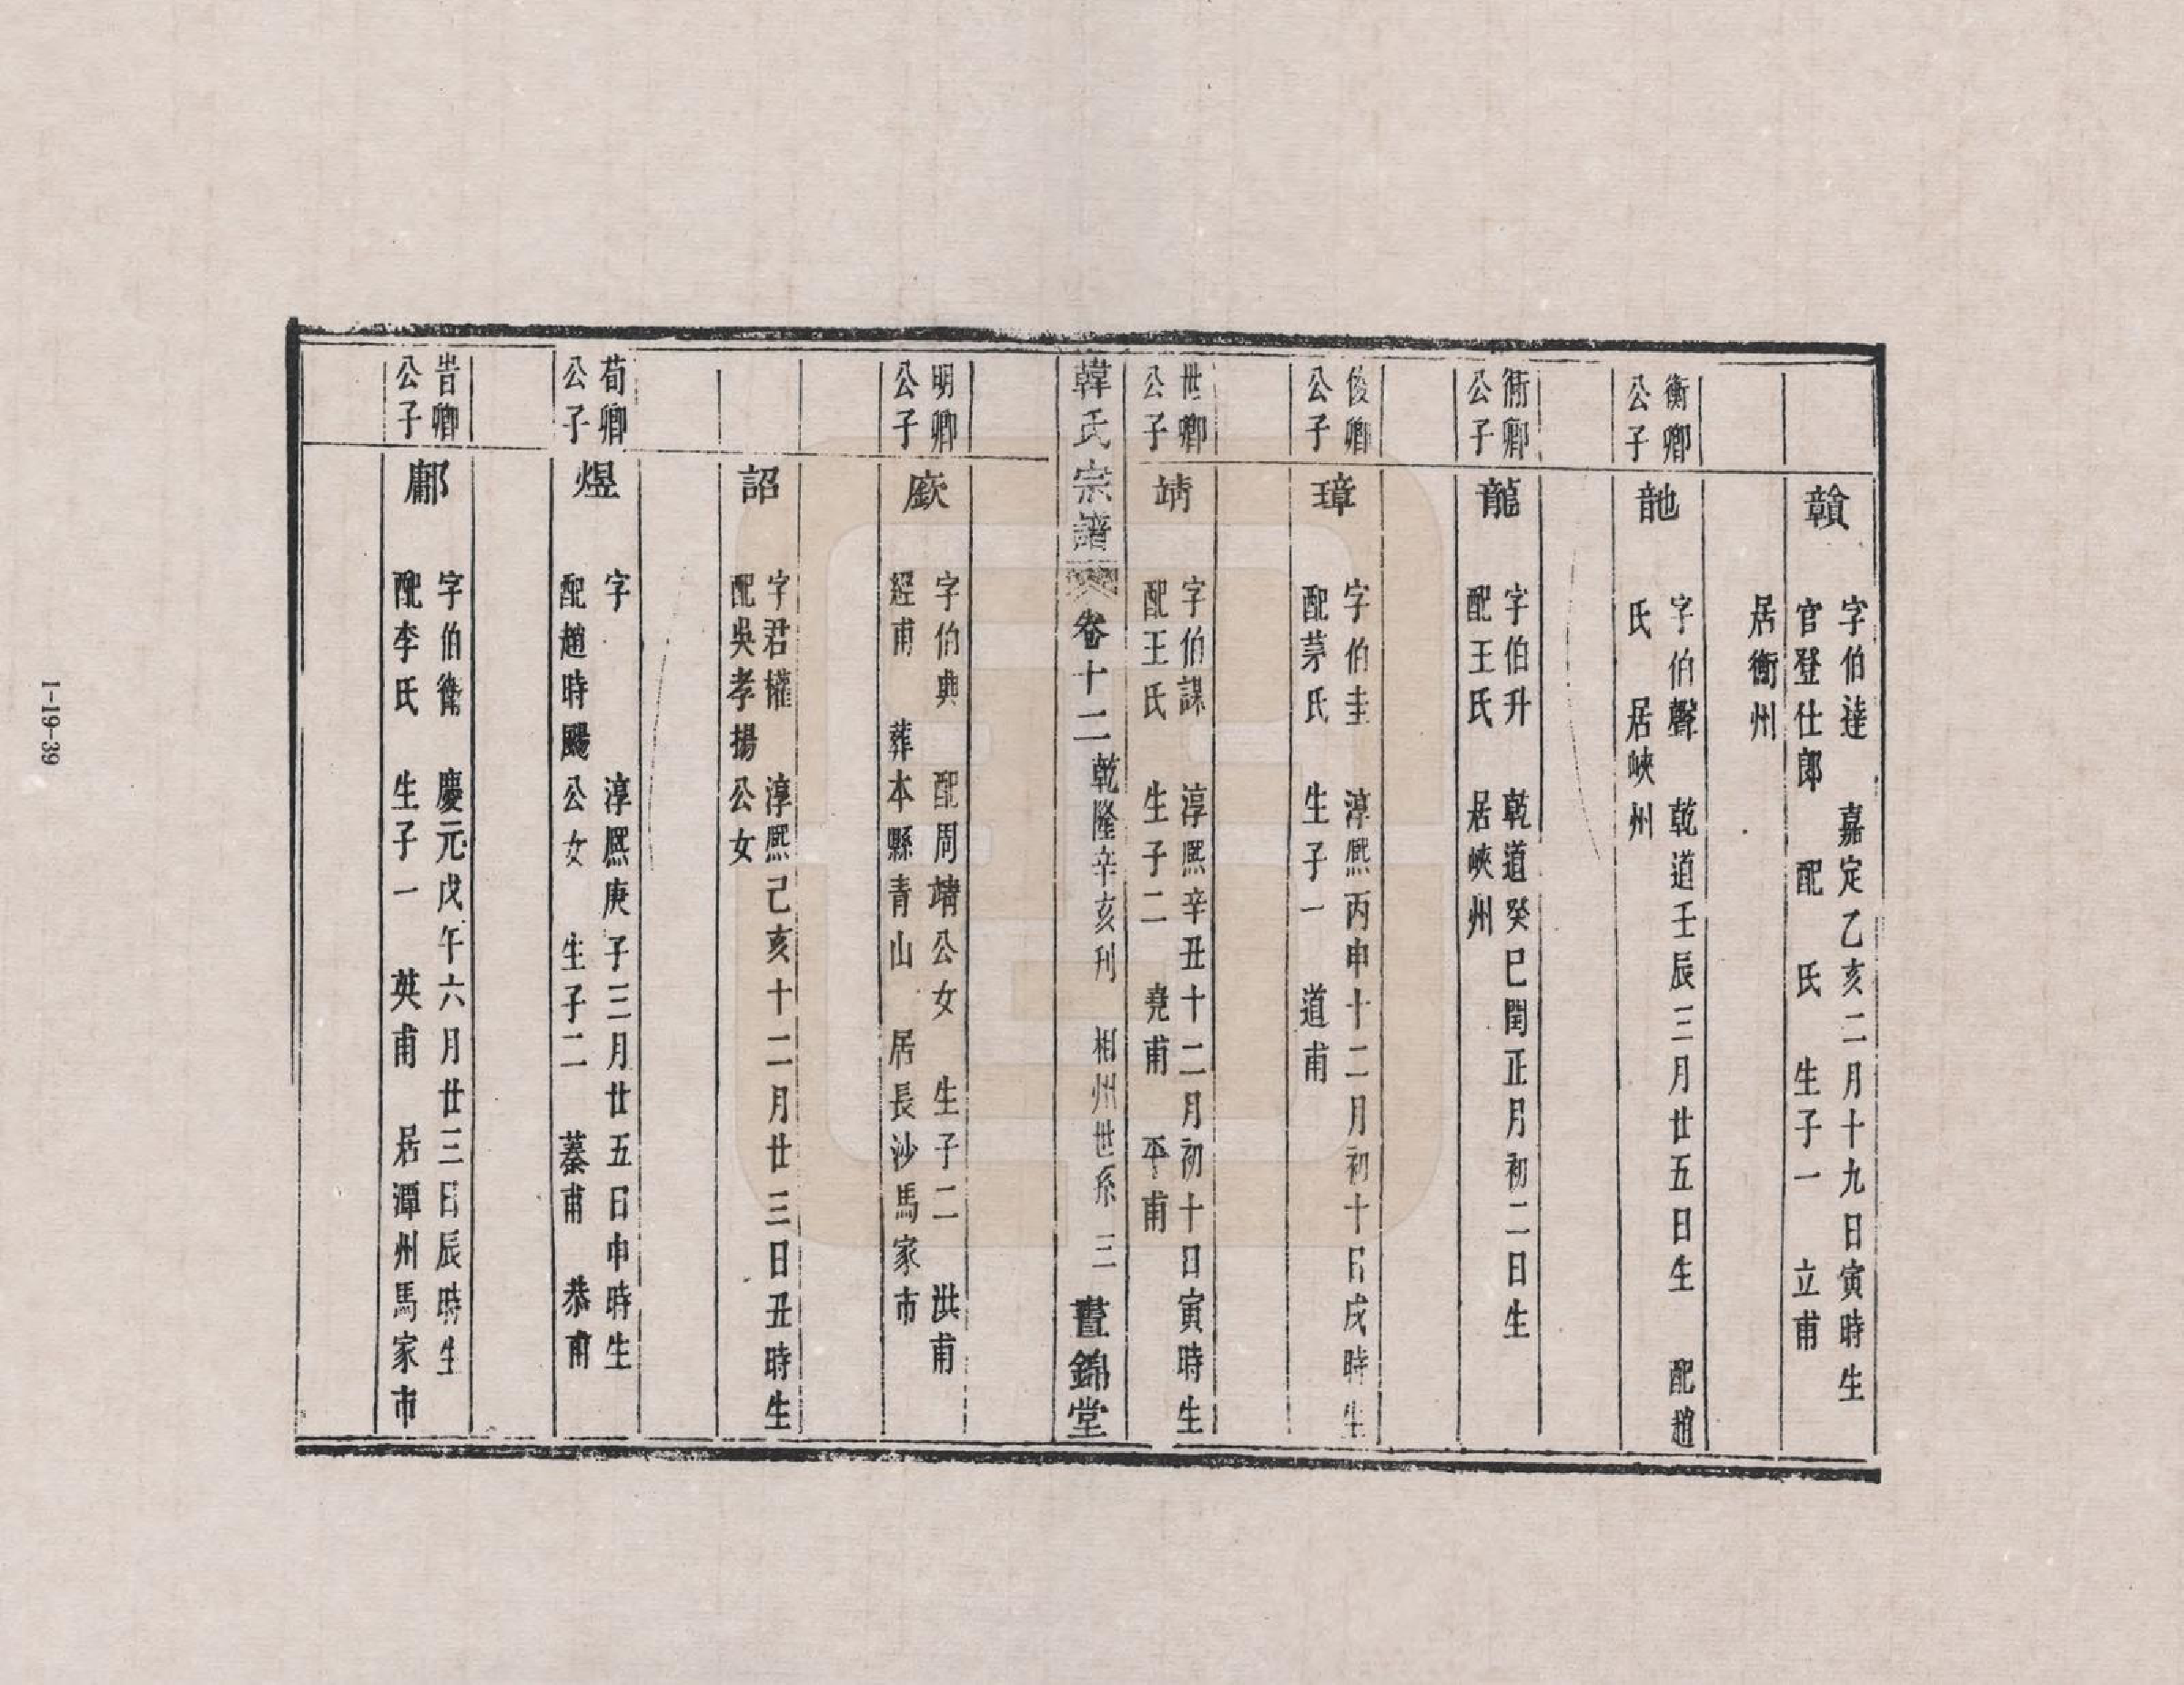 字伯達 嘉定乙亥二月十九日寅時生
官登仕郎 配 氏 生子一 立甫
居衡州
衡卿
公子
字伯聲 乾道壬辰三月廿五日生 配趙
氏 居峽州
衛卿
公子
龍
字伯升 乾道癸巳閏正月初二日生
配王氏 居峽州
俊卿
公子
璋
字伯圭 淳熙丙申十二月初十日戌時生
配茅氏 生子一 道甫
世卿
公子
靖
字伯謀 淳熙辛丑十二月初十日寅時生
配王氏 生子二 堯甫 平甫
韓氏宗譜 卷十二 乾隆辛亥刊 相州世系 三 晝錦堂
明卿
公子
廞
字伯典 配周靖公女 生子二 洪甫
經甫 葬本縣青山 居長沙馬家市
詔
字君權 淳熙己亥十二月廿三日丑時生
配吳孝揚公女
荀卿
公子
煜
字 淳熙庚子三月廿五日申時生
配趙時颺公女 生子二 蓁甫 恭甫
卿
公子
鄘
字伯衛 慶元戊午六月廿三日辰時生
配李氏 生子一 英甫 居潭州馬家市
1-19-39